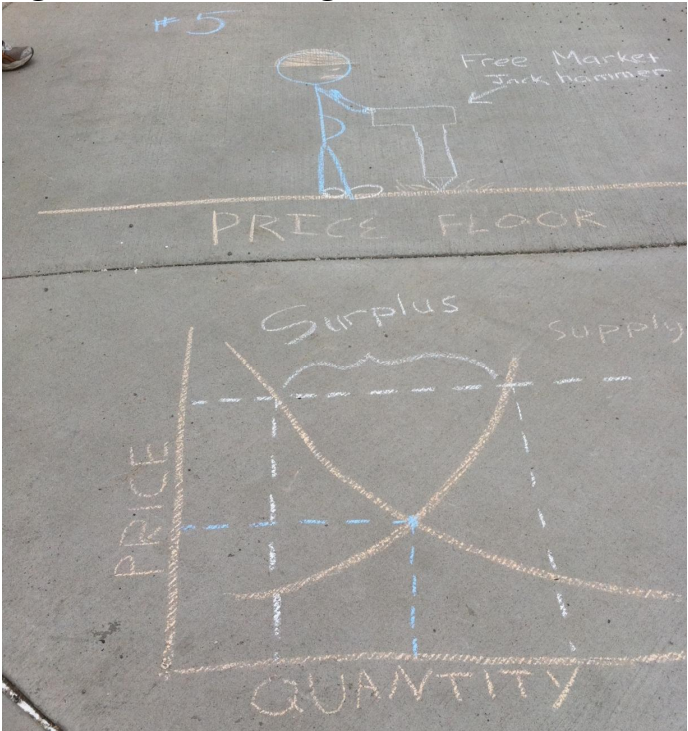 #5
Free Market
Jackhammer
PRICE FLOOR
Surplus
Supply
PRICE
QUANTITY